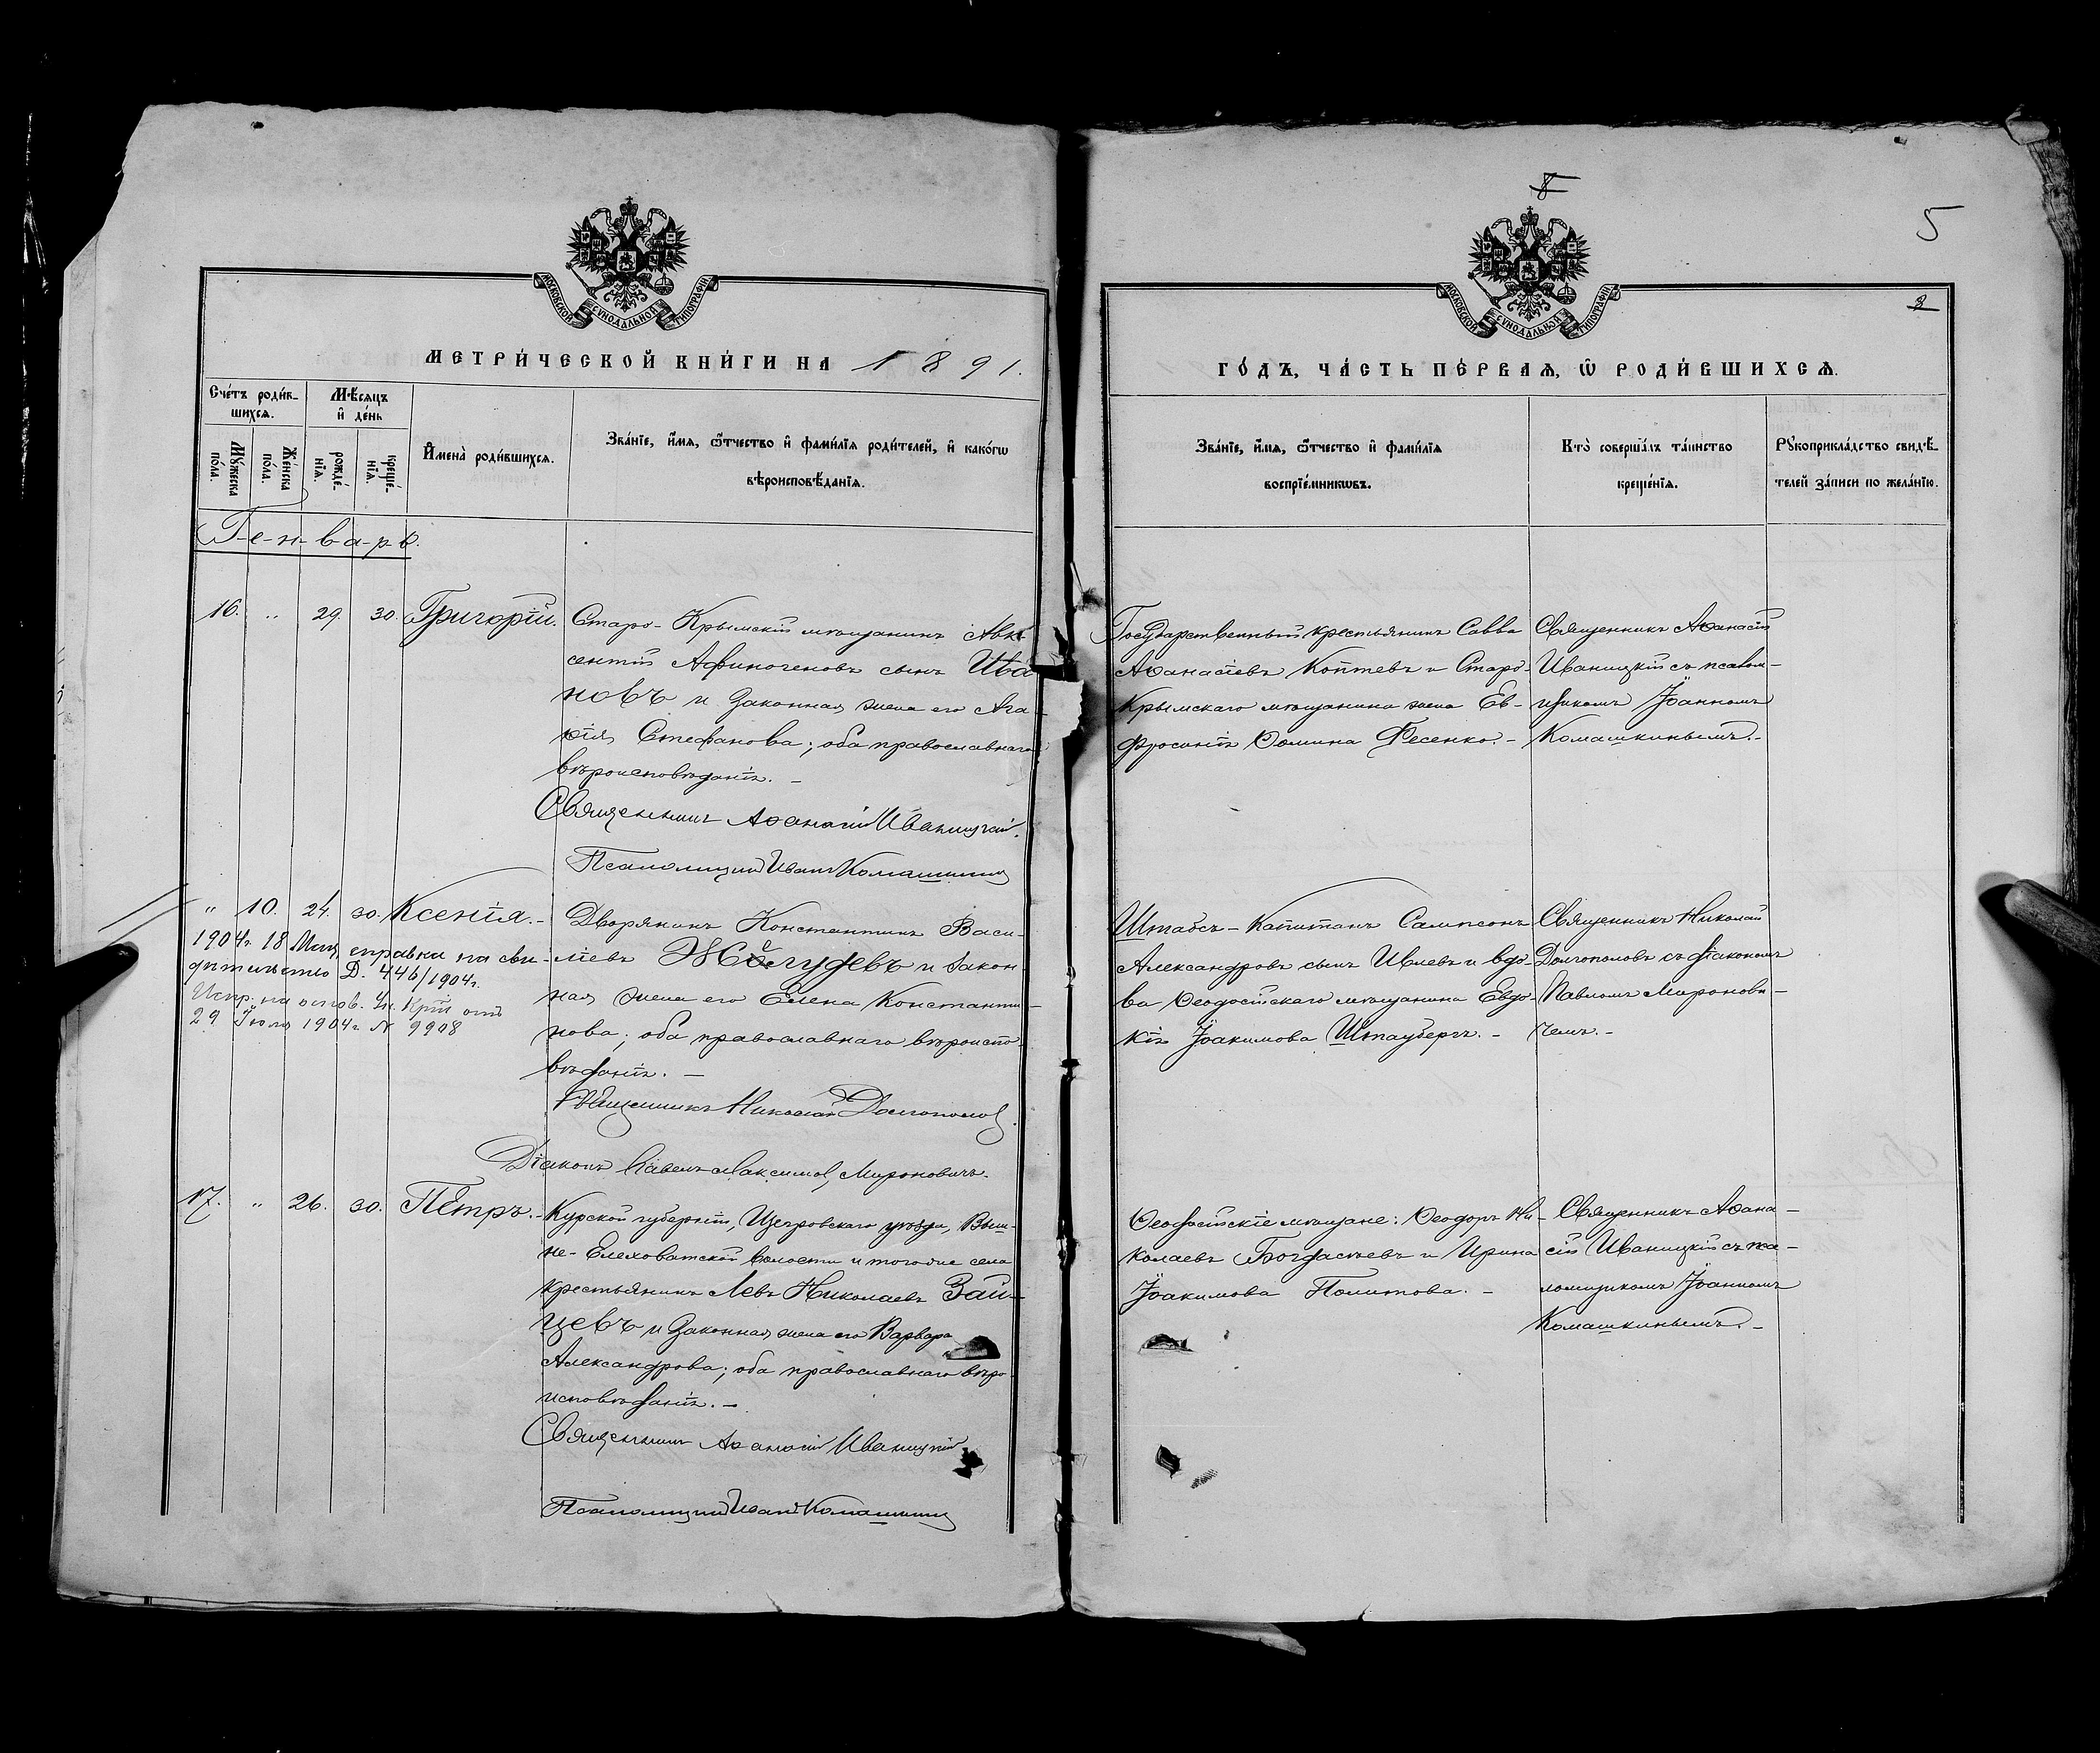 МОСКОВСКОЙ СѴНОДАЛЬНОЙ ТИПОГРАФІИ.
МЕТРИ́ЧЕСКОЙ КНИ́ГИ НА 1891.
Сче́тъ роди́в-
шихсѧ.
Мѣ́сѧцъ
и҆ де́нь
Мꙋ́жеска
по́ла.
Же́нска
по́ла.
рожде́-
нїѧ.
креще́-
нїѧ.
И҆мена̀ роди́вшихсѧ.
Зва́нїе, и҆́мѧ, ѻ҆́тчество и҆ фами́лїѧ роди́телей, и҆ како́гѡ
вѣроисповѣ́данїѧ.
Генварь.
16. " 29. 30. Григорій.
Старо-Крымскій мѣщанинъ Авк-
сентій Афиногеновъ сынъ Ива-
новъ и законная жена его Ага-
ѳія Стефанова; оба православнаго
вѣроисповѣданія. -
Священникъ Аѳанасій Иваницкій.
Псаломщикъ Иванъ Комашкинъ
" 10. 24. 30. Ксенія. -
1904 г. 18 Мая, справка на сви-
дѣтельство Д. 446/1904 г.
Испр. на основ. Ук. Крыт отъ
29 Іюля 1904 г. № 9908
Дворянинъ Константинъ Васи-
ліевъ Жолудевъ и закон-
ная жена его Елена Константи-
нова; оба православнаго вѣроиспо-
вѣданія. -
Священникъ Николай Долгополов.
Діаконъ Павелъ Максимов, Мироновичъ.
17. " 26. 30. Петръ. -
Курской губерніи, Щигровскаго уѣзда, Выш-
не-Елеховатской волости и тогоже села
крестьянинъ Левъ Николаевъ Зай-
цевъ и законная жена его Варвара
Александрова; оба православнаго вѣро-
исповѣданія. -
Священникъ Аѳанасій Иваницкій
Псаломщикъ Иванъ Комашкинъ
8
5
МОСКОВСКОЙ СѴНОДАЛЬНОЙ ТИПОГРАФІИ.
8
ГО́ДЪ, ЧА́СТЬ ПЕ́РВАѦ, Ѡ҆ РОДИ́ВШИХСѦ.
Зва́нїе, и҆́мѧ, ѻ҆́тчество и҆ фами́лїѧ
воспрїе́мникѡвъ.
Кто̀ соверша́лъ та́инство
креще́нїѧ.
Рꙋкоприкла́дство свидѣ́-
телей за́писи по жела́нїю.
Государственный крестьянинъ Савва
Аѳанасіевъ Коптевъ и Старо-
Крымскаго мѣщанина жена Ев-
фросинія Ѳомина Фесенко. -
Священникъ Аѳанасій
Иваницкій съ псалом-
щикомъ Іоанномъ
Комашкинымъ. -
Штабсъ-Капитанъ Сампсонъ
Александровъ сынъ Ивлевъ и вдо-
ва Ѳеодосійскаго мѣщанина Евдо-
кія Іоакимова Штаубергъ. -
Священникъ Николай
Долгополовъ съ діакономъ
Павломъ Миронови-
чемъ. -
Ѳеодосійскіе мѣщане: Ѳеодоръ Ни-
колаевъ Богдасьевъ и Ирина
Іоакимова Политова. -
Священникъ Аѳана-
сій Иваницкій съ пса-
ломщикомъ Іоанномъ
Комашкинымъ. -